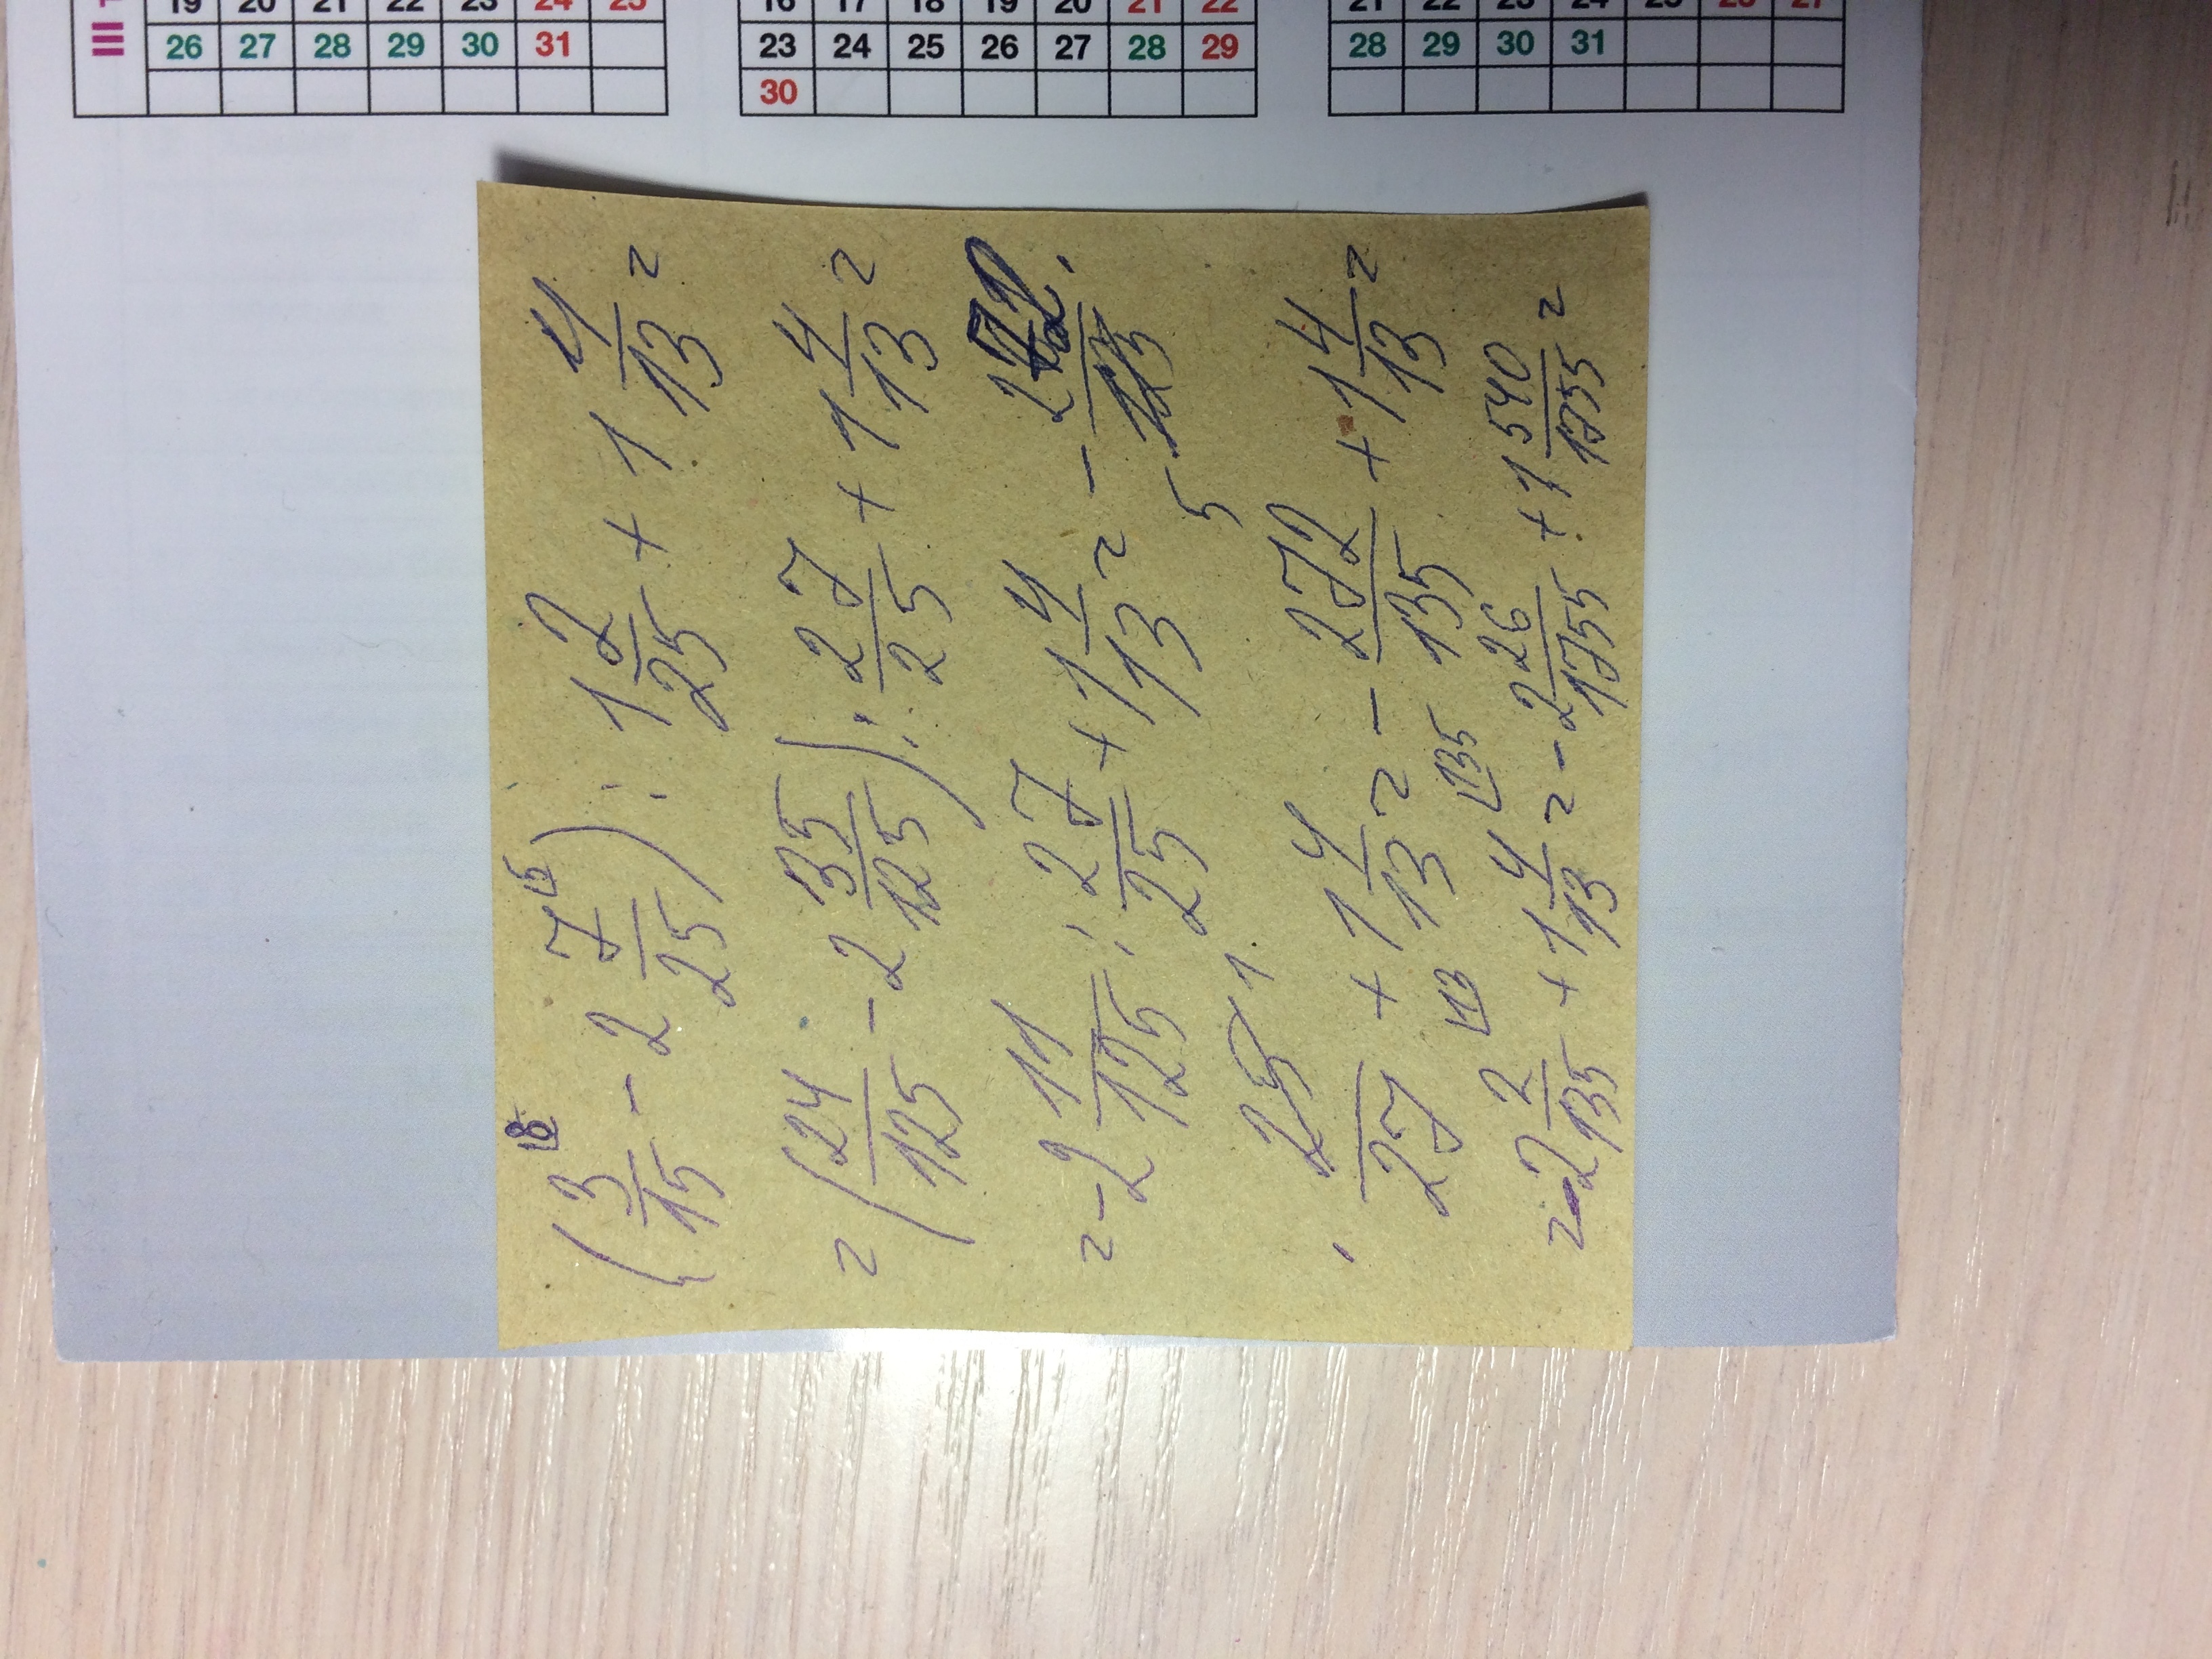 III
19 20 21 22 23 24 25
26 27 28 29 30 31
16 17 18 19 20 21 22
23 24 25 26 27 28 29
30
21 22 23 24 25 26 27
28 29 30 31
(3/15 - 2 7/25 ⌊5) : 1 2/25 + 1 4/13 =
= (24/125 - 2 35/125) : 27/25 + 1 4/13 =
= -2 11/125 : 27/25 + 1 4/13 = - 272/
· 25 1/27 + 1 4/13 = - 272/135 + 1 4/13 =
= -2 2/135 ⌊13 + 1 4/13 ⌊135 = -2 26/1755 + 1 540/1755 =